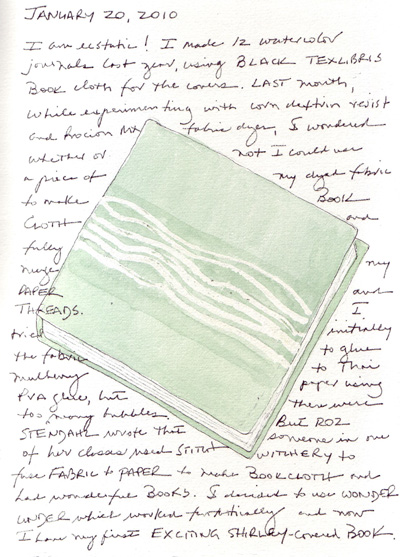 JANUARY 20, 2010
I am ecstatic! I made 12 watercolor
journals last year, using BLACK TEXLIBRIS
BOOK cloth for the covers. LAST month,
while experimenting with corn dextrin resist
and Procion MX fabric dyes, I wondered
whether or not I could use
a piece of my dyed fabric
to make BOOK
CLOTH and
fully
merge my
PAPER and
THREADS. I
tried initially
the fabric to glue
mulberry to Thai
PVA glue, but paper using
too many bubbles. there were
STENDAHL wrote that But ROZ
of her classes used STITCH someone in one
fuse FABRIC to PAPER to make BOOKCLOTH and WITHERY to
had wonderful BOOKS. I decided to use WONDER
UNDER which worked fantastically and now
I have my first EXCITING SHIRLEY-covered BOOK.